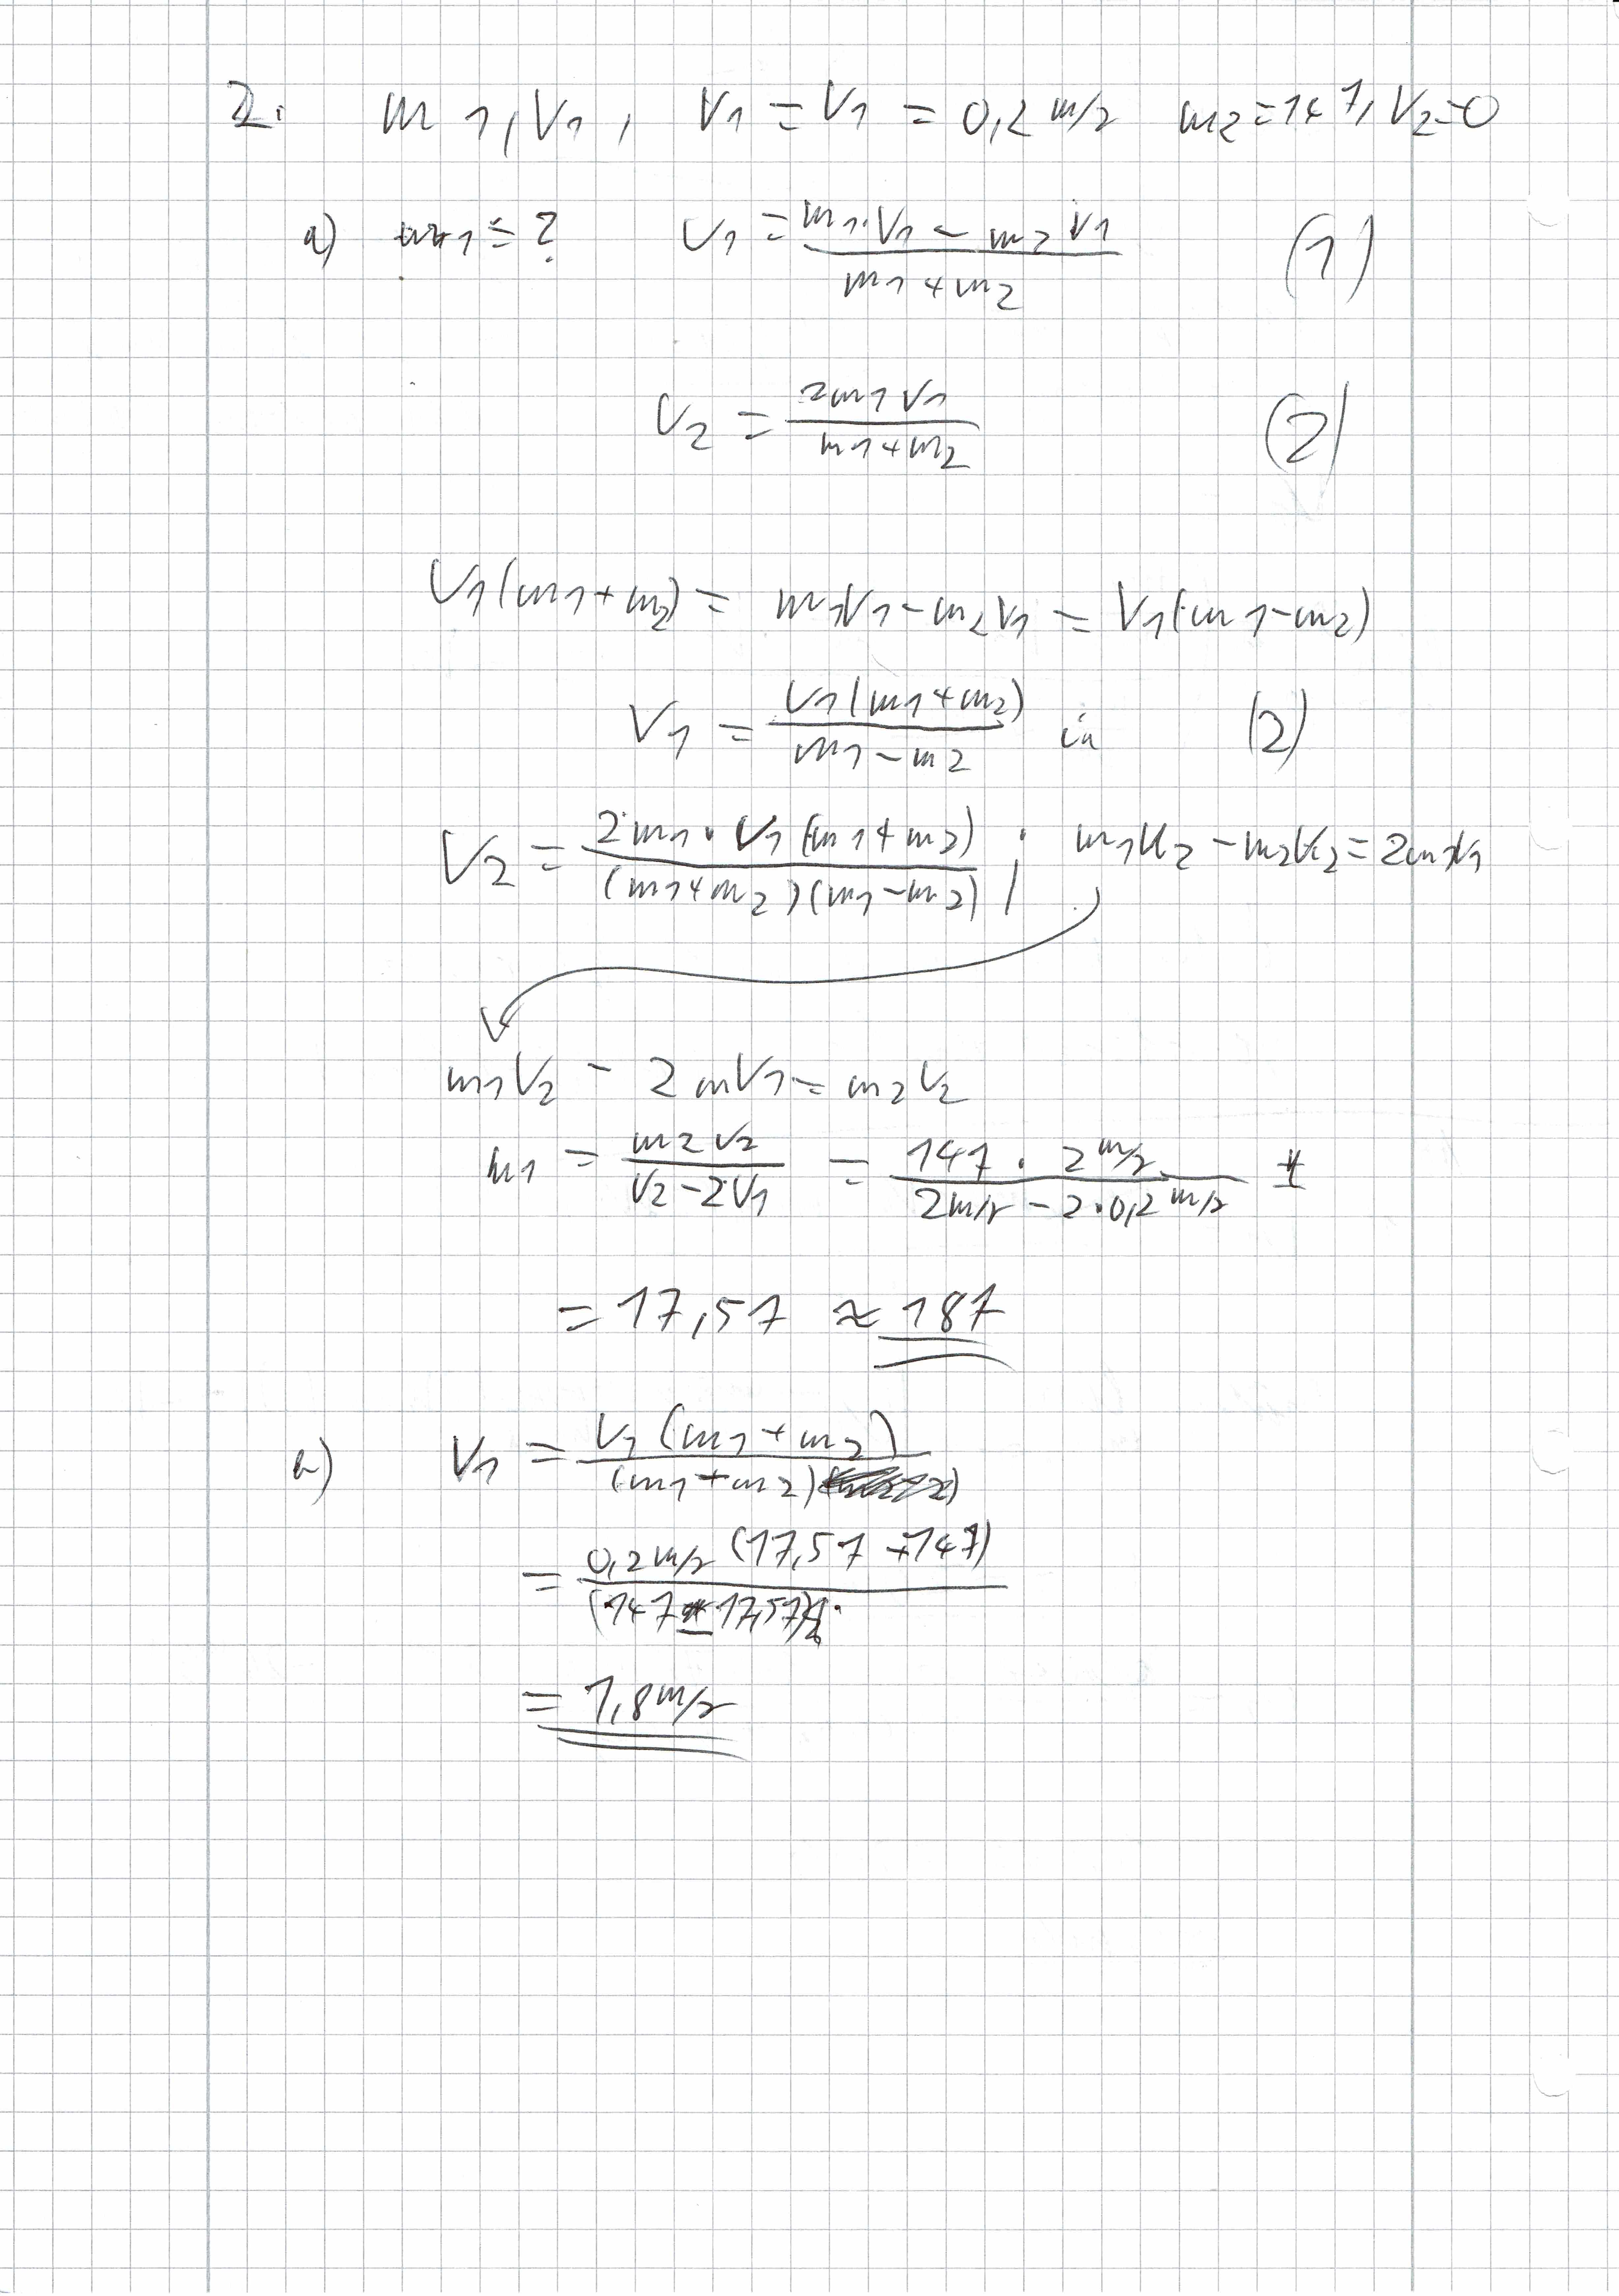 2. m1, V1, V1 = V1 = 0,2 m/s m2=14t, V2=0
a) m1 = ? V1 = (m1·V1 - m2 V1)/(m1+m2) (1)
V2 = (2m1 V1)/(m1+m2) (2)
V1(m1+m2) = m1V1-m2V1 = V1(m1-m2)
V1 = (V1(m1+m2))/(m1-m2) in (2)
V2 = (2m1 · V1(m1+m2))/((m1+m2)(m1-m2)) ; m1V2-m2V2=2m1V1
m1V2 - 2mV1 = m2V2
m1 = (m2V2)/(V2-2V1) = (14t · 2m/s)/(2m/s - 2·0,2m/s)
= 17,5t ≈ 18t
b) V1 = (V1(m1+m2))/((m1+m2))
= (0,2m/s (17,5t+14t))/((14t-17,5t))
= 1,8m/s